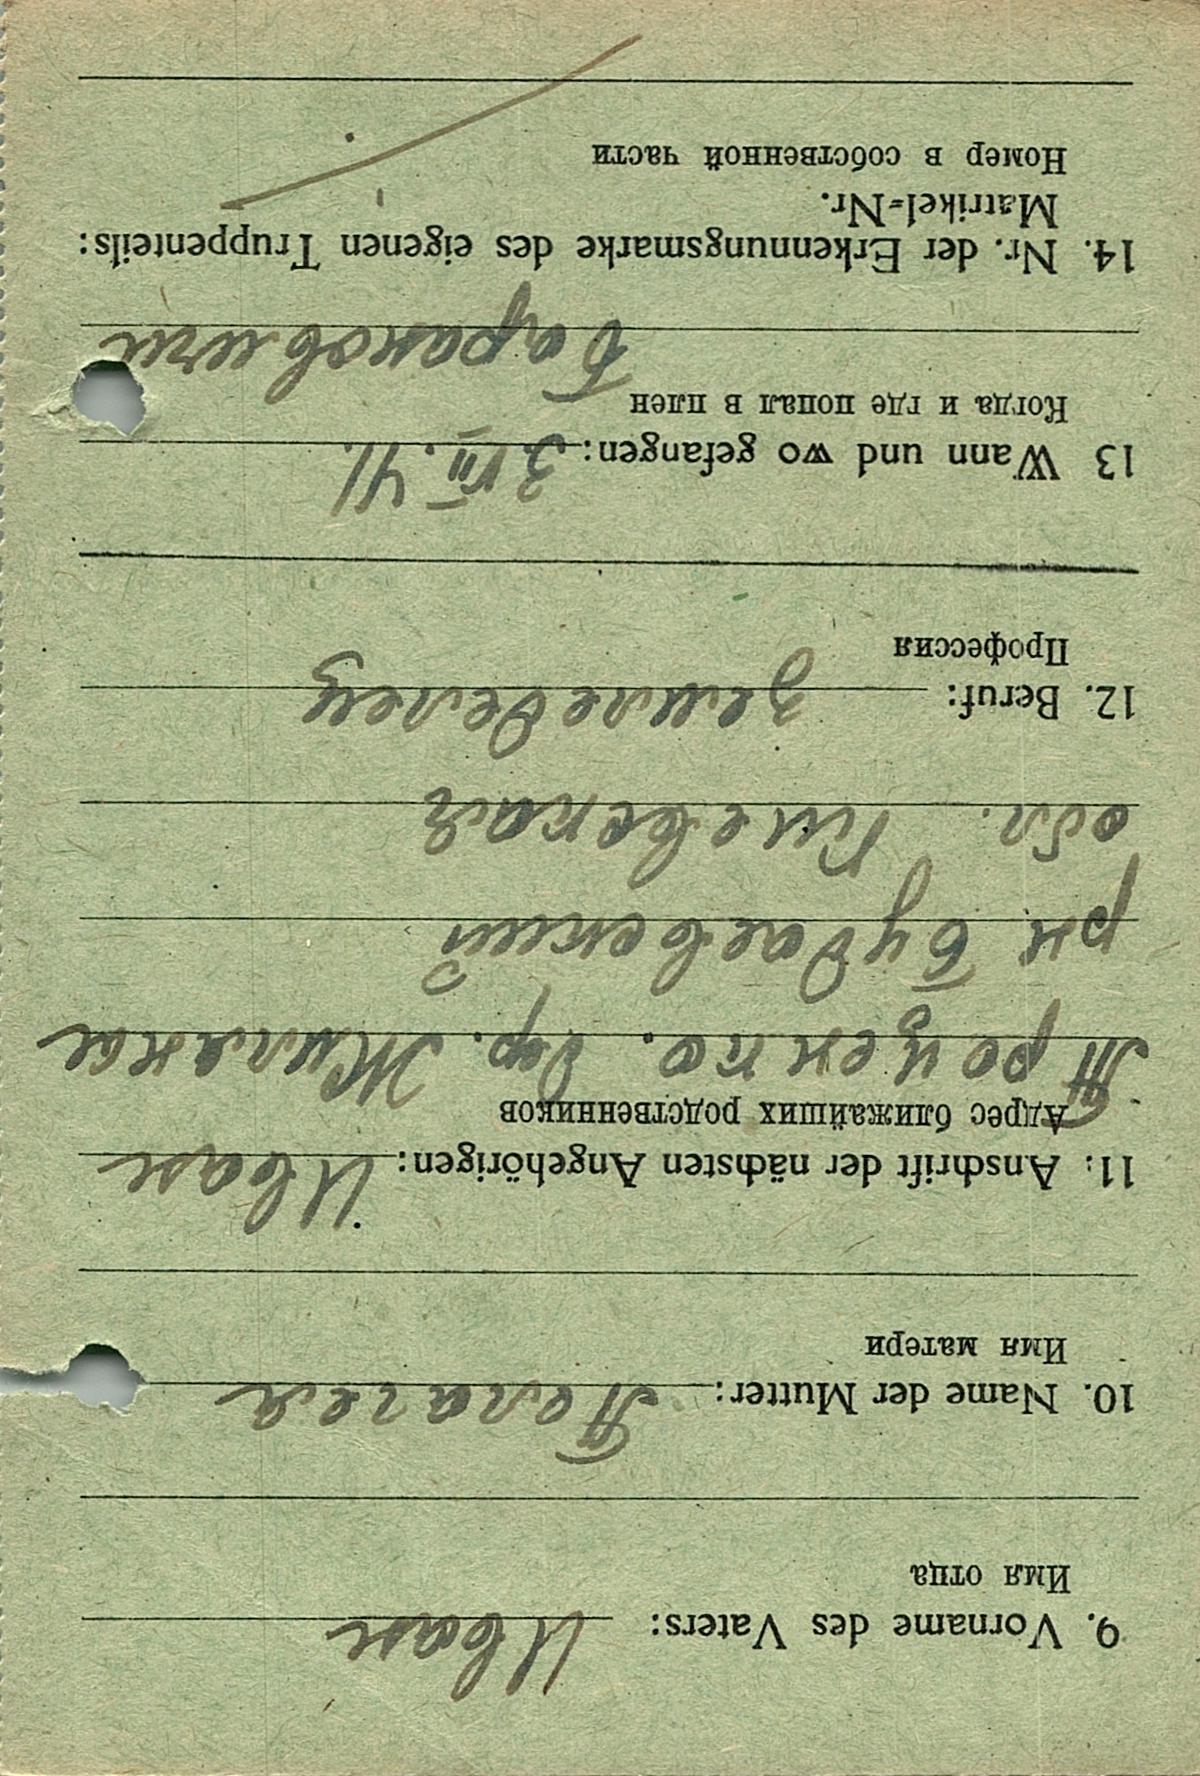 9. Vorname des Vaters: Иван
Имя отца
10. Name der Mutter: Пелагея
Имя матери
11. Anschrift der nächsten Angehörigen: Иван
Адрес ближайших родственников
Троценко. дер. Жиляне
рн Будаевский
обл. Киевская
12. Beruf: земледелец
Профессия
13 Wann und wo gefangen: 3.VII.41.
Когда и где попал в плен
Барановичи
14. Nr. der Erkennungsmarke des eigenen Truppenteils:
Matrikel-Nr.
Номер в собственной части